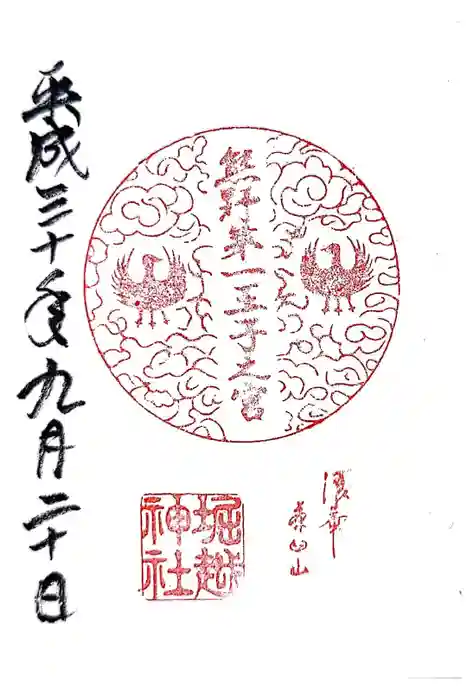 浪華
茶臼山
熊野第一王子之宮
堀越
神社
平成三十年九月二十日